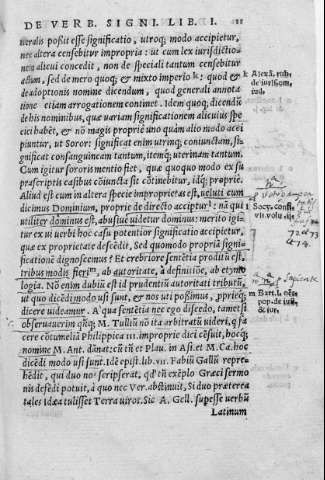 DE VERB. SIGNI. LIB. I.
neralis possit esse significatio, utroq; modo accipietur,
nec altera censebitur impropria: ut cum lex iurisdictio-
nem alicui concedit, non de speciali tantum censebitur
actum, sed de mero quoq; & mixto imperio k: quod &
de adoptionis nomine dicendum, quod generali annota
tione etiam arrogationem continet. Idem quoq; dicendũ
de his nominibus, quæ uariam significationem alicuius spe
ciei habẽt, & nõ magis propriè uno quàm alio modo acci
piuntur, ut Soror: significat enim utrunq; coniunctam, si-
gnificat consanguineam tantum, itemq; uterinam tantum.
Cum igitur sororis mentio fiet, quæ quoquo modo ex su
præscriptis casibus cõiuncta sit cõtinebitur, idq; propriè.
Aliud est cum in altera specie impropriè esset, ueluti cum
dicimus Dominium, propriè de directo accipitur l: nã qui
utiliter dominus est, abusiuè uidetur dominus: meritò igi-
tur ex ui uerbi hoc casu potentior significatio accipietur,
quæ ex proprietate descẽdit. Sed quomodo propriã signi-
ficationẽ dignoscemus? Et crebriore sentẽtia proditũ est,
tribus modis fieri m, ab autoritate, à definitiõe, ab etymo
logia. Nõ enim dubiũ est id prudentiũ autoritati tributũ,
ut quo dicẽdi modo usi sunt, & nos uti possimus, ppriéq;
dicere uideamur. A' qua sentẽtia nec ego discedo, tametsi
obseruauerim qñq; M. Tulliũ nõ ita arbitratũ uideri, q̃ fa
cere cõtumeliã Philippica III. impropriè dici cẽsuit, hocq;
nomine M. Ant. dãnat: cũ tñ et Plau. in Asi. et M. Ca. hoc
dicẽdi modo usi sunt. Idẽ epist. lib. VII. Fabiũ Gallũ repre
hẽdit, qui duo nos scripserat, qd' tñ exẽplo Græci sermo
nis defẽdi potuit, à quo nec Ver. abstinuit, Si duo præterea
tales Idæa tulisset Terra uiros. Sic A. Gell. supesse uerbũ
Latinum
k Alexã. rub.
de iurisom.
l Socy. consi-
m Bart. l. oẽs
pop. de iust.
& iur.
72 et 73
et 74.